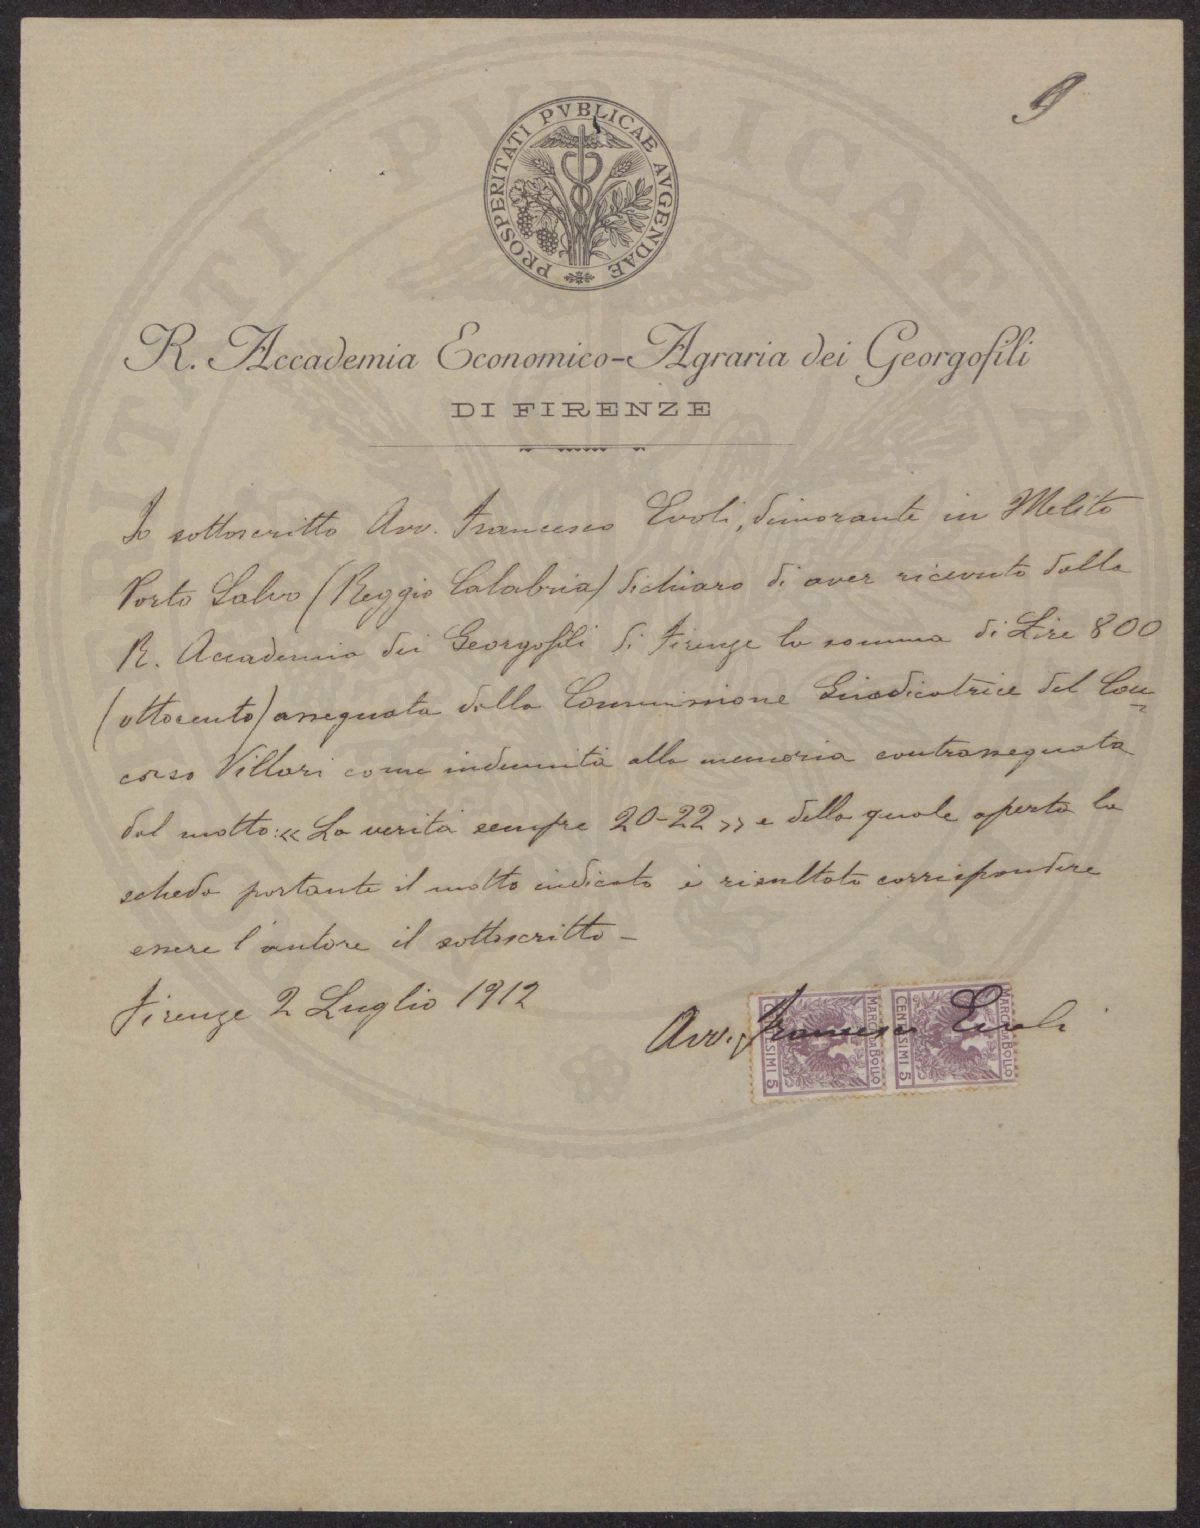 9
PROSPERITATI PVBLICAE AVGENDAE
R. Accademia Economico-Agraria dei Georgofili
DI FIRENZE
Io sottoscritto Avv. Francesco Evoli, dimorante in Melito
Porto Salvo (Reggio Calabria) dichiaro di aver ricevuto dalla
R. Accademia dei Georgofili di Firenze la somma di Lire 800
(ottocento) assegnata dalla Commissione Giudicatrice del Con=
corso Villari come indennità alla memoria contrassegnata
dal motto: « La verità sempre 20-22 » e della quale aperta la
scheda portante il motto indicato è risultato corrispondere
essere l'autore il sottoscritto -
Firenze 2 Luglio 1912
Avv. Francesco Evoli
MARCA DA BOLLO
CENTESIMI 5
MARCA DA BOLLO
CENTESIMI 5